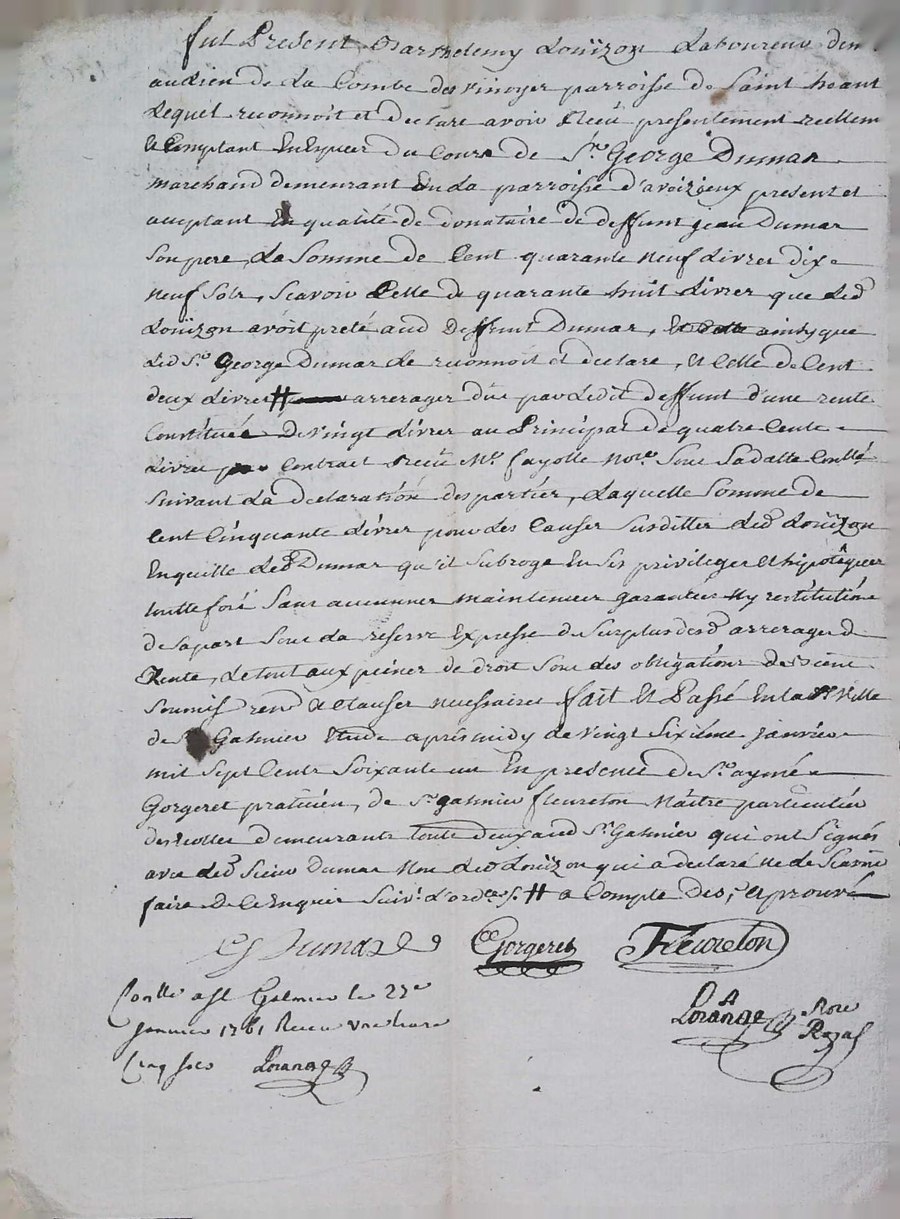 fut Present Barthelemy Loüizon Laboureur dem.
au lieu de La Combe des vinoyer parroisse de Saint heant
Lequel reconnoit et declare avoir Receü presentement reellem
& Comptant En Especes du Cours de Sr. George Dumar
marchand demeurant En La parroisse d'avoizieux present et
aceptant En qualité de donataire de deffunt jean Dumar
Son pere, La Somme de Cent quarante neuf Livres dix
neuf Sols, Scavoir Celle de quarante huit Livres que Led
Loüizon avoit preté aud Deffunt Dumar, ainsy que
Led Sr. George Dumar Le reconnoit et declare, et Celle de Cent
deux Livres # arrerages dûe par Ledit deffunt d'une rente
Constituée De vingt Livres au Principal de quatre Cents
Livres par Contract Receü Me. fayolle Nore. Sous Sa datte Conllé
Suivant La declaration des parties, Laquelle Somme de
Cent Cinquante Livres pour Les Causes Susdittes Led Loüizon
En quitte Led Dumar qu'il Subroge En Ses privileges et hipotêques
toutte fois Sans aucunnes maintenues garanties Ny restitution
de Sa part Sous La reserve Expresse du Surplus desd arrerages de
Rente, Le tout aux peines de droit Sous Les obligations de biens
Soumis. ren. & Clauses necessaires fait Et Passé En La Ville
de St. Galmier Etude aprés midy Le vingt Sixiême janvier
mil Sept Cents Soixante un En presence de Sr. aymé
Gorgeret praticien, de Sr. galmier fleureton Maitre particulier
des ecolles demeurants toute deux aud St. Galmier qui ont Signés
avec Led Sieur Dumar Non Led Loüizon qui a declaré ne Le Scavoir
faire De Ce Enquis Suivt. L'ordce. S. # a Compte Des, aprouvé
G Dumas
Gorgeret Fleureton
Conllé a St Galmier le 27e
janvier 1761 Receu une livre
Cinq sols Lorange
Lorange Nore
Royal